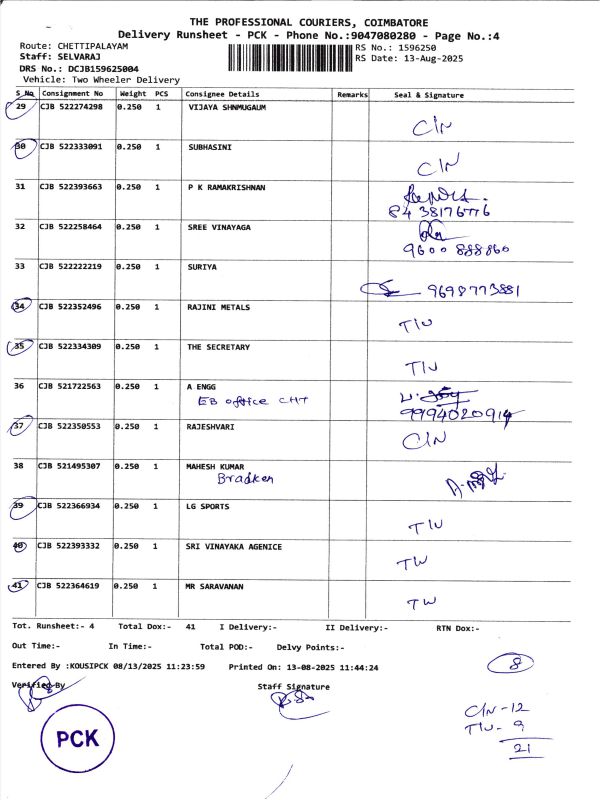 THE PROFESSIONAL COURIERS, COIMBATORE
Delivery Runsheet - PCK - Phone No.:9047080280 - Page No.:4
Route: CHETTIPALAYAM RS No.: 1596250
Staff: SELVARAJ RS Date: 13-Aug-2025
DRS No.: DCJB159625004
Vehicle: Two Wheeler Delivery
S No Consignment No Weight PCS Consignee Details Remarks Seal & Signature
29 CJB 522274298 0.250 1 VIJAYA SHNMUGAUM
C/N
30 CJB 522333091 0.250 1 SUBHASINI
C/N
31 CJB 522393663 0.250 1 P K RAMAKRISHNAN
84 38176776
32 CJB 522258464 0.250 1 SREE VINAYAGA
9600 888860
33 CJB 522222219 0.250 1 SURIYA
9698773881
34 CJB 522352496 0.250 1 RAJINI METALS
T/W
35 CJB 522334309 0.250 1 THE SECRETARY
T/W
36 CJB 521722563 0.250 1 A ENGG
EB office CHT
9994020914
37 CJB 522350553 0.250 1 RAJESHVARI
C/N
38 CJB 521495307 0.250 1 MAHESH KUMAR
Bradken
39 CJB 522366934 0.250 1 LG SPORTS
T/W
40 CJB 522393332 0.250 1 SRI VINAYAKA AGENICE
TW
41 CJB 522364619 0.250 1 MR SARAVANAN
TW
Tot. Runsheet:- 4 Total Dox:- 41 I Delivery:- II Delivery:- RTN Dox:-
Out Time:- In Time:- Total POD:- Delvy Points:-
Entered By :KOUSIPCK 08/13/2025 11:23:59 Printed On: 13-08-2025 11:44:24
8
Verified By Staff Signature
C/N - 12
T/W - 9
21
PCK